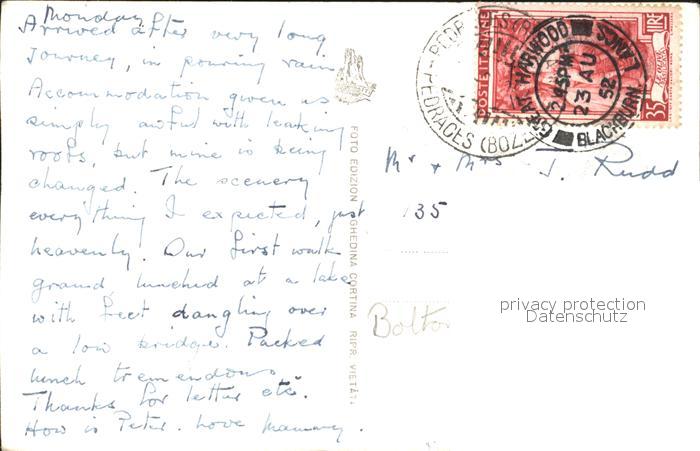 Monday
Arrived after very long
journey, in pouring rain
Accommodation given us
simply awful with leaking
roofs, but mine is being
changed. The scenery
everything I expected, just
heavenly. Our first walk
grand, lunched at a lake
with feet dangling over
a low bridge. Packed
lunch tremendous.
Thanks for letter etc.
How is Peter. Love Mammy.
FOTO EDIZION GHEDINA CORTINA RIPR. VIETATA
POSTE ITALIANE
LIRE
35
PEDRACES (BOZE
GREAT HARWOOD
BLACKBURN
LANCS
2 45PM
23 AU
52
Mr & Mrs J. Rudd
135
Bolton
privacy protection
Datenschutz